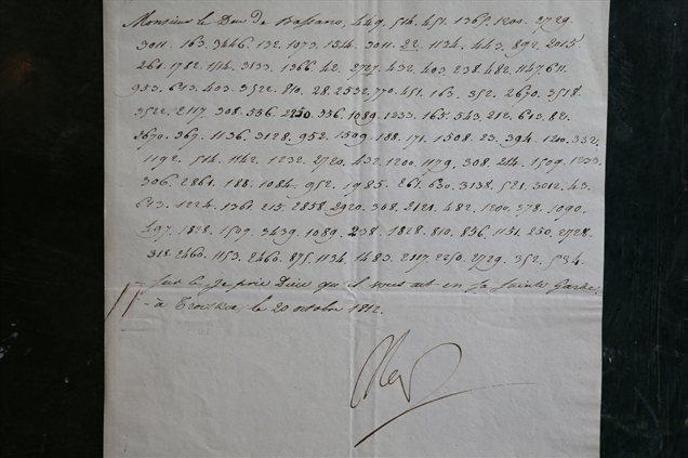 Monsieur le Duc de Bassano, 449. 514. 451. 1365. 1200. 2729.
3011. 163. 3446. 132. 1073. 1544. 3011. 22. 1134. 443. 892. 2015
261. 1782. 3133. 1366. 42. 2727. 432. 403. 238. 482. 1147. 611.
953. 613. 403. 3522. 810. 28. 2532. 770. 451. 163. 352. 2670. 3518.
3522. 2117. 308. 536. 2250. 336. 1089. 1233. 165. 543. 212. 613. 82.
3670. 367. 1136. 3128. 952. 1509. 188. 171. 1508. 23. 394. 1200. 332.
1192. 514. 1142. 1232. 2720. 432. 1200. 1179. 308. 214. 1509. 1233.
306. 2861. 188. 1084. 952. 1985. 261. 630. 3138. 521. 3012. 43.
613. 1224. 1361. 215. 2858. 2920. 308. 2121. 482. 1200. 378. 1090.
497. 1828. 1509. 3439. 1089. 238. 1828. 810. 836. 1131. 250. 2728.
318. 2460. 1153. 2460. 875. 1134. 1483. 2117. 2250. 2729. 352. 534.
Sur ce Je prie Dieu qu'il vous ait en Sa Sainte Garde,
à Troitskoe, le 20 octobre 1812.